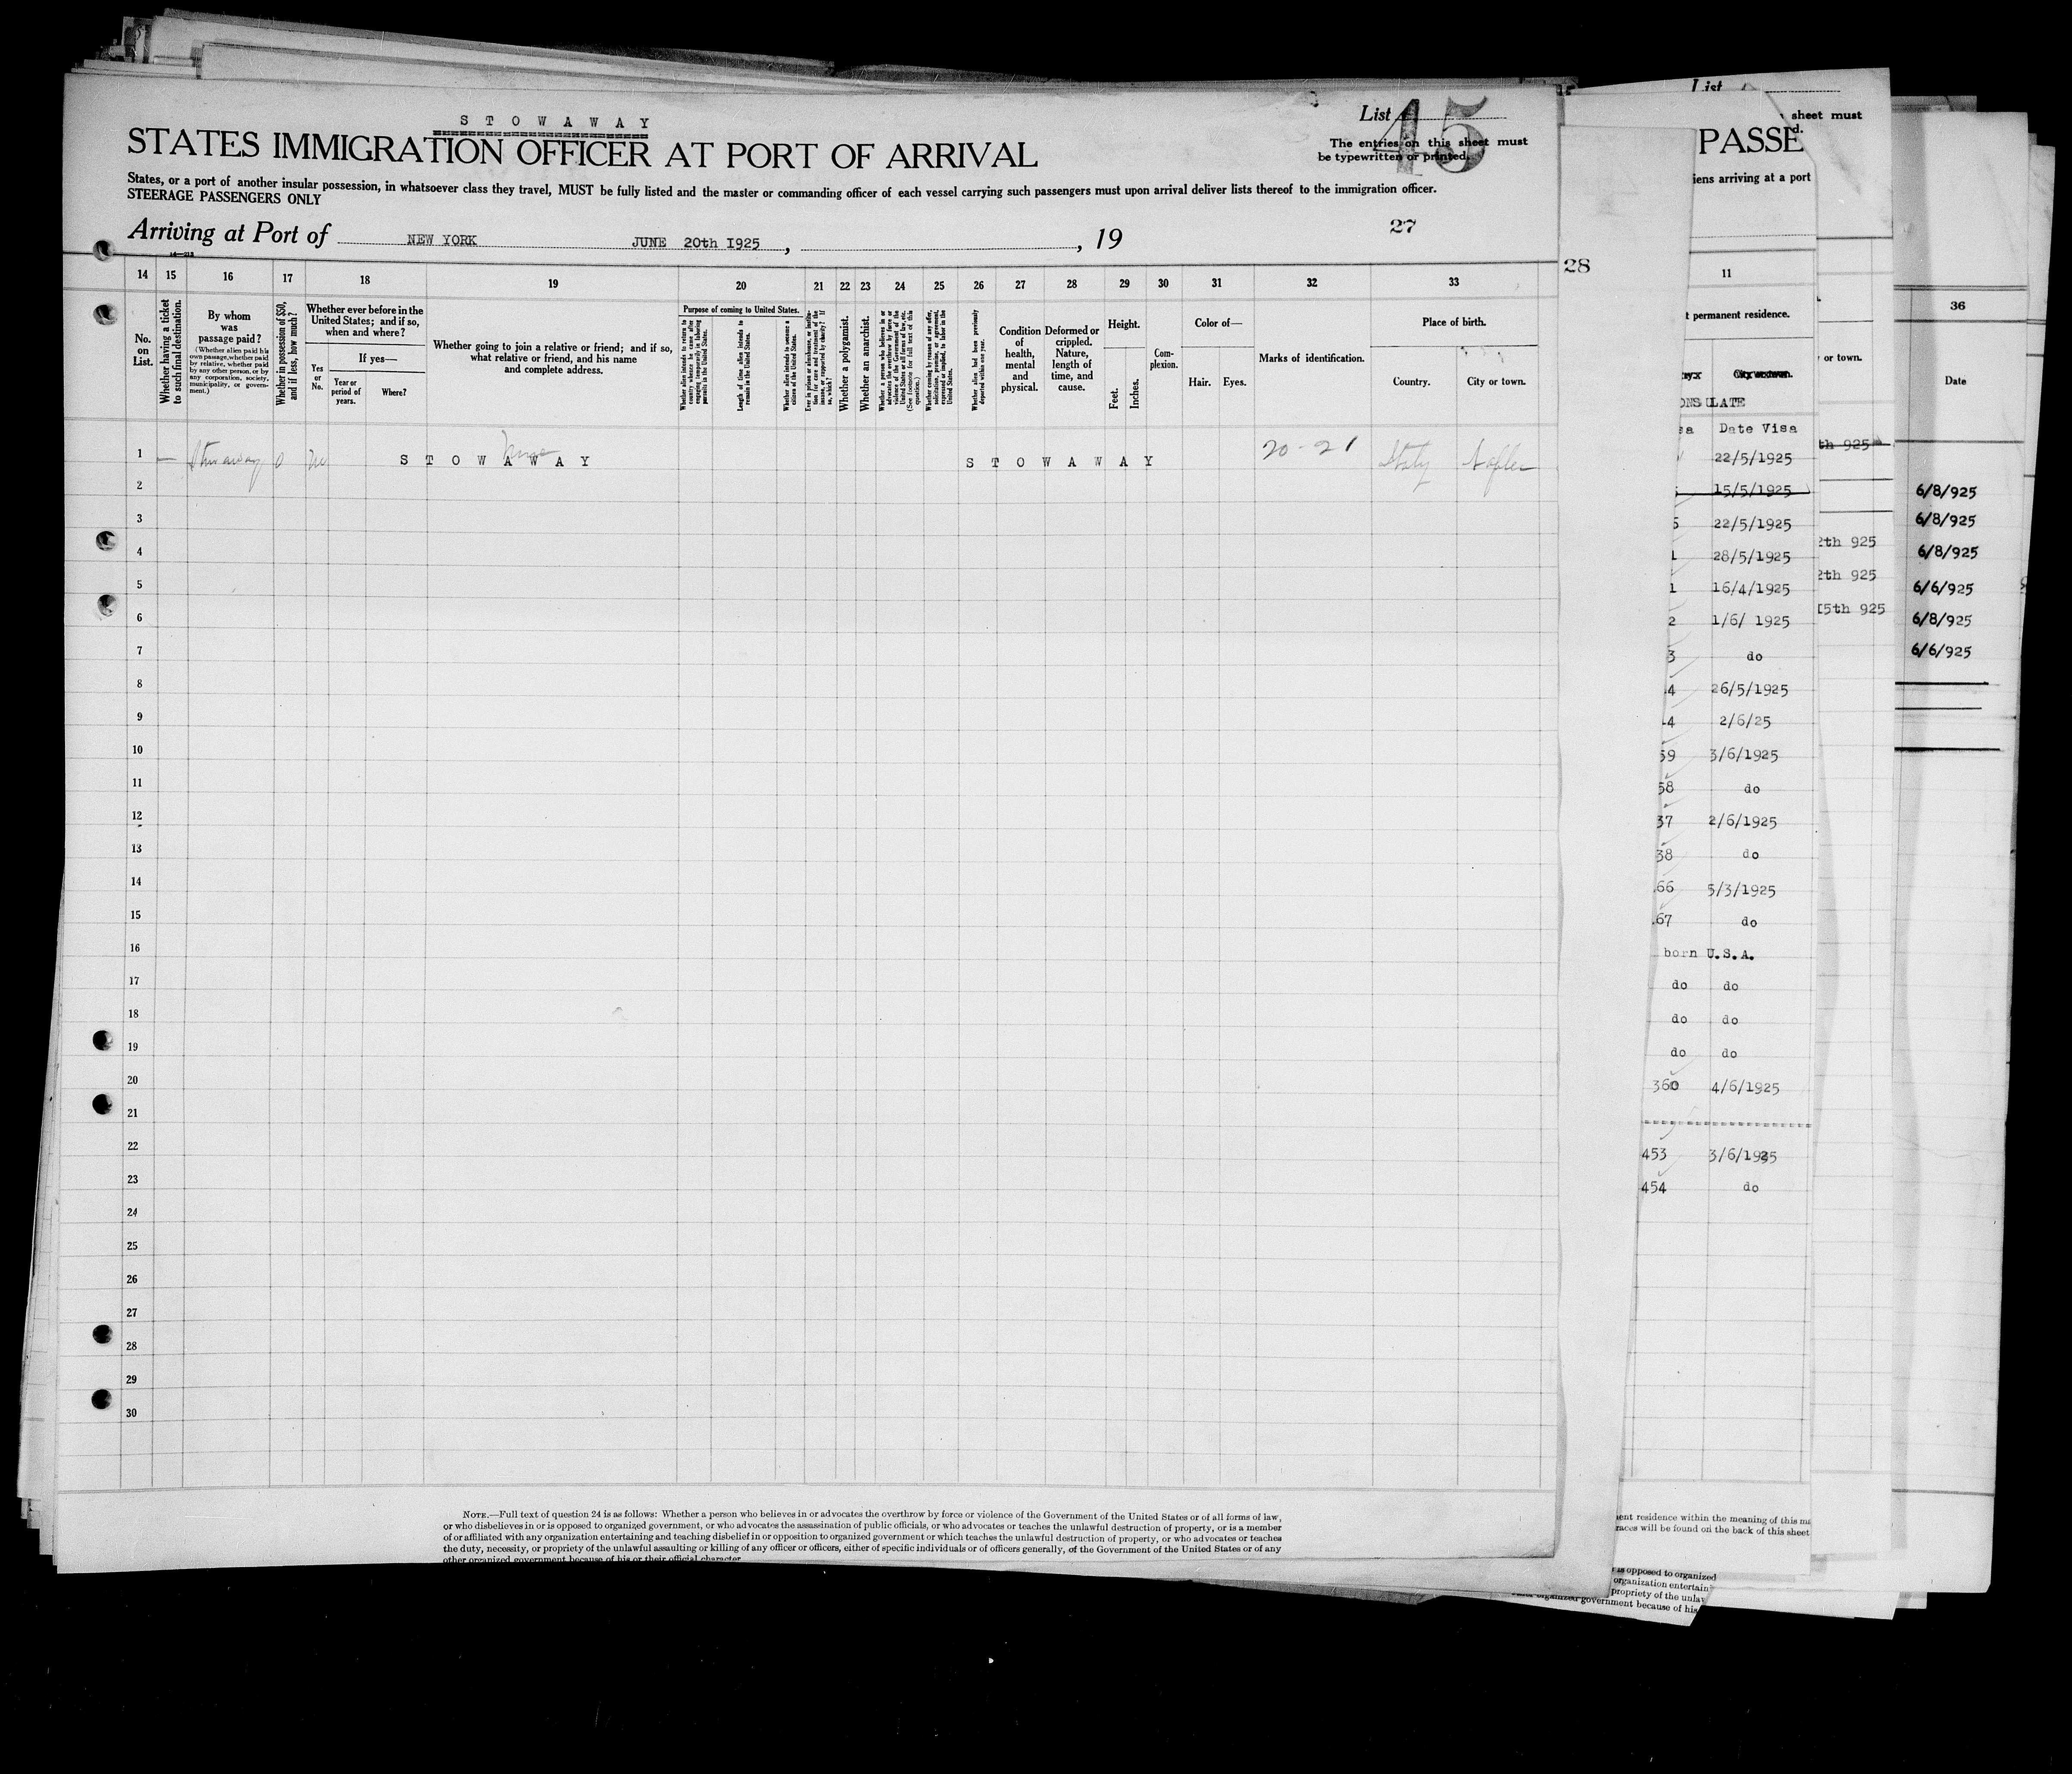 S T O W A W A Y
STATES IMMIGRATION OFFICER AT PORT OF ARRIVAL
List
45
The entries on this sheet must
be typewritten or printed.
States, or a port of another insular possession, in whatsoever class they travel, MUST be fully listed and the master or commanding officer of each vessel carrying such passengers must upon arrival deliver lists thereof to the immigration officer.
STEERAGE PASSENGERS ONLY
Arriving at Port of NEW YORK JUNE 20th I925, , 19
27
28
14 15 16 17 18 19 20 21 22 23 24 25 26 27 28 29 30 31 32 33
No. on List.
Whether having a ticket to such final destination.
By whom was passage paid?
(Whether alien paid his own passage, whether paid by relative, whether paid by any other person, or by any corporation, society, municipality, or government.)
Whether in possession of $50, and if less, how much?
Whether ever before in the United States; and if so, when and where?
Yes or No.
If yes—
Year or period of years.
Where?
Whether going to join a relative or friend; and if so, what relative or friend, and his name and complete address.
Purpose of coming to United States.
Whether alien intends to return to country whence he came after engaging temporarily in laboring pursuits in the United States.
Length of time alien intends to remain in the United States.
Whether alien intends to become a citizen of the United States.
Ever in prison or almshouse, or institution for care and treatment of the insane, or supported by charity? If so, which?
Whether a polygamist.
Whether an anarchist.
Whether a person who believes in or advocates the overthrow by force or violence of the Government of the United States or all forms of law, etc. (See footnote for full text of this question.)
Whether coming by reason of any offer, solicitation, promise, or agreement, expressed or implied, to labor in the United States.
Whether alien had been previously deported within one year.
Condition of health, mental and physical.
Deformed or crippled. Nature, length of time, and cause.
Height.
Feet. Inches.
Com-
plexion.
Color of—
Hair. Eyes.
Marks of identification.
Place of birth.
Country. City or town.
1 — Stowaway 0 No S T O W A W A Y S T O W A W A Y 20-21 Italy Naples
2
3
4
5
6
7
8
9
10
11
12
13
14
15
16
17
18
19
20
21
22
23
24
25
26
27
28
29
30
NOTE.—Full text of question 24 is as follows: Whether a person who believes in or advocates the overthrow by force or violence of the Government of the United States or of all forms of law,
or who disbelieves in or is opposed to organized government, or who advocates the assassination of public officials, or who advocates or teaches the unlawful destruction of property, or is a member
of or affiliated with any organization entertaining and teaching disbelief in or opposition to organized government or which teaches the unlawful destruction of property, or who advocates or teaches
the duty, necessity, or propriety of the unlawful assaulting or killing of any officer or officers, either of specific individuals or of officers generally, of the Government of the United States or of any
other organized government because of his or their official character.
List
sheet must
PASSE
iens arriving at a port
11
t permanent residence.
ONSULATE
Date Visa
22/5/1925
15/5/1925
22/5/1925
28/5/1925
16/4/1925
1/6/ 1925
do
26/5/1925
2/6/25
59 3/6/1925
58 do
37 2/6/1925
38 do
66 5/3/1925
67 do
born U.S.A.
do do
do do
do do
360 4/6/1925
453 3/6/1925
454 do
or town.
th 925
2th 925
2th 925
I5th 925
36
Date
6/8/925
6/8/925
6/8/925
6/6/925
6/8/925
6/6/925
ent residence within the meaning of this
races will be found on the back of this sheet
is opposed to organized
organization entertain
propriety of the unla
organized government because of his